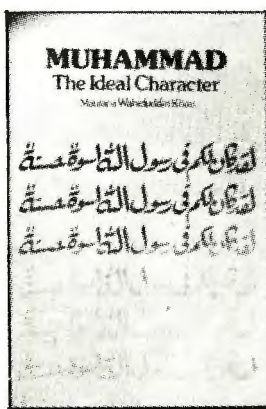 MUHAMMAD
The Ideal Character
Maulana Wahiduddin Khan
لقد كان لكم في رسول الله أسوة حسنة
لقد كان لكم في رسول الله أسوة حسنة
لقد كان لكم في رسول الله أسوة حسنة